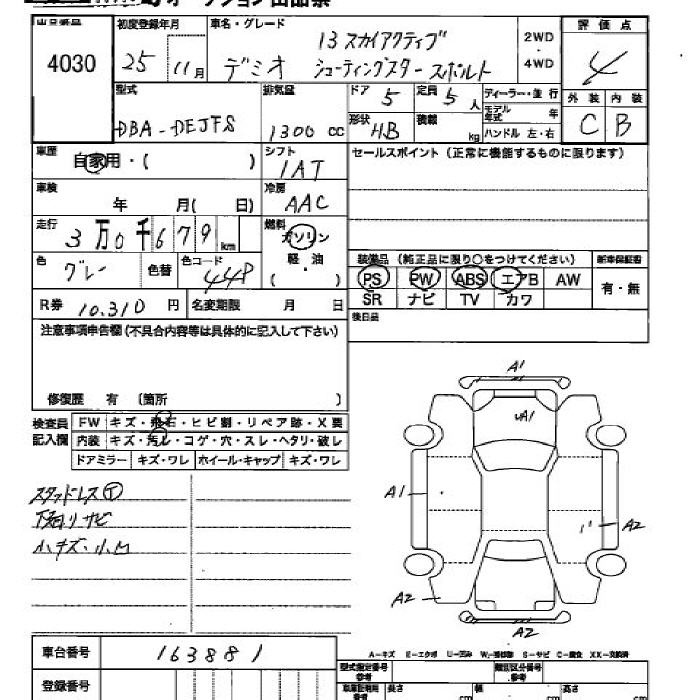 オークション出品票
出品番号 初度登録年月 車名・グレード 13 スカイアクティブ 2WD 評価点
4030 25 11月 デミオ シューティングスター スポルト ・ 4WD 4
型式 排気量 ドア 5 定員 5人 ディーラー・並行 外装 内装
DBA-DEJFS 1300 cc 形状 HB 積載 kg モデル年式 年 ハンドル 左・右 C B
車歴 自家用・( ) シフト 1AT セールスポイント (正常に機能するものに限ります)
車検 年 月( 日) 冷房 AAC
走行 3万0千679km 燃料 ガソリン
色 グレー 色替 色コード 44P 軽・油 装備品 (純正品に限り○をつけてください) 新車保証書
( ) PS PW ABS エアB AW 有・無
R券 10,310 円 名変期限 月 日 SR ナビ TV カワ
注意事項申告欄(不具合内容等は具体的に記入して下さい) 後日品
修復歴 有 (箇所 )
検査員 FW キズ・飛石・ヒビ割・リペア跡・X要
記入欄 内装 キズ・汚レ・コゲ・穴・スレ・ヘタリ・破レ
ドアミラー キズ・ワレ ホイール・キャップ キズ・ワレ
A1
A1
A1
A2
A2
A2
スタッドレス T
下廻りサビ
小キズ・小凹
車台番号 163881
A-キズ E-エクボ U-凹み W-補修跡 S-サビ C-腐食 XX-交換済
登録番号
型式指定番号 参考 類別区分番号 参考
長さ cm 幅 cm 高さ cm